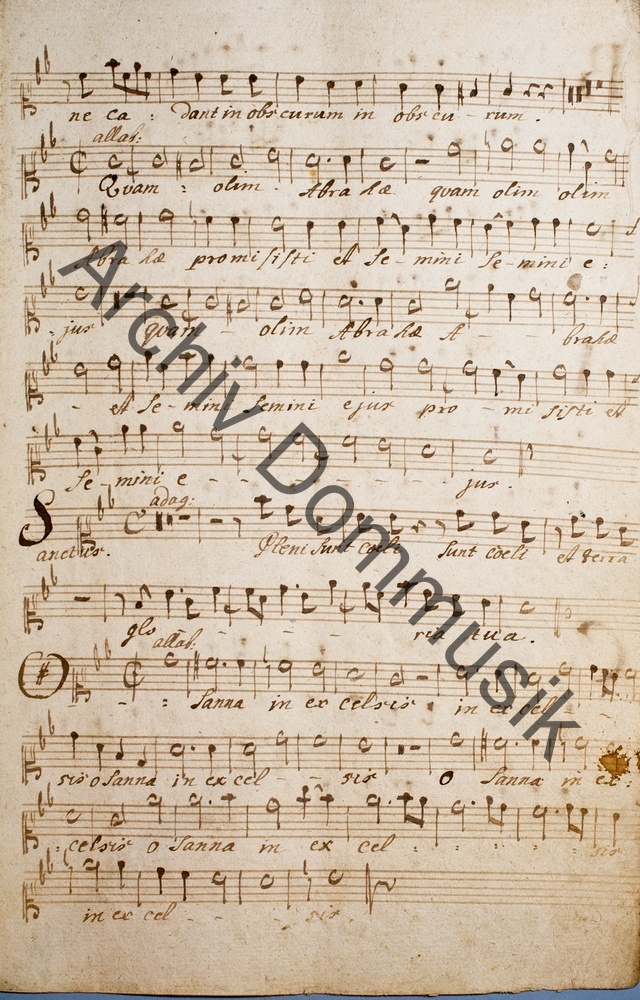 ne ca : dant in obscurum in obscu - rum .
allab:
Quam : olim . Abra hæ quam olim olim
Abra hæ promisisti et Se - mini Se - mini e :
jus quam - olim Abra hæ A - - brahæ
- et Se - mini Semini ejus pro - mi sisti et
Se - mini e - - - - - - - jus .
adag:
Sanctus . Pleni sunt coeli sunt coeli et terra
glo - - - - - ria tua .
allab:
- : Sanna in ex celsis in ex cel - -
sis o Sanna in ex cel - - sis o Sanna in ex :
: celsis o Sanna in ex cel : : : : : sis
in ex cel - - - sis .
Archiv Dommusik